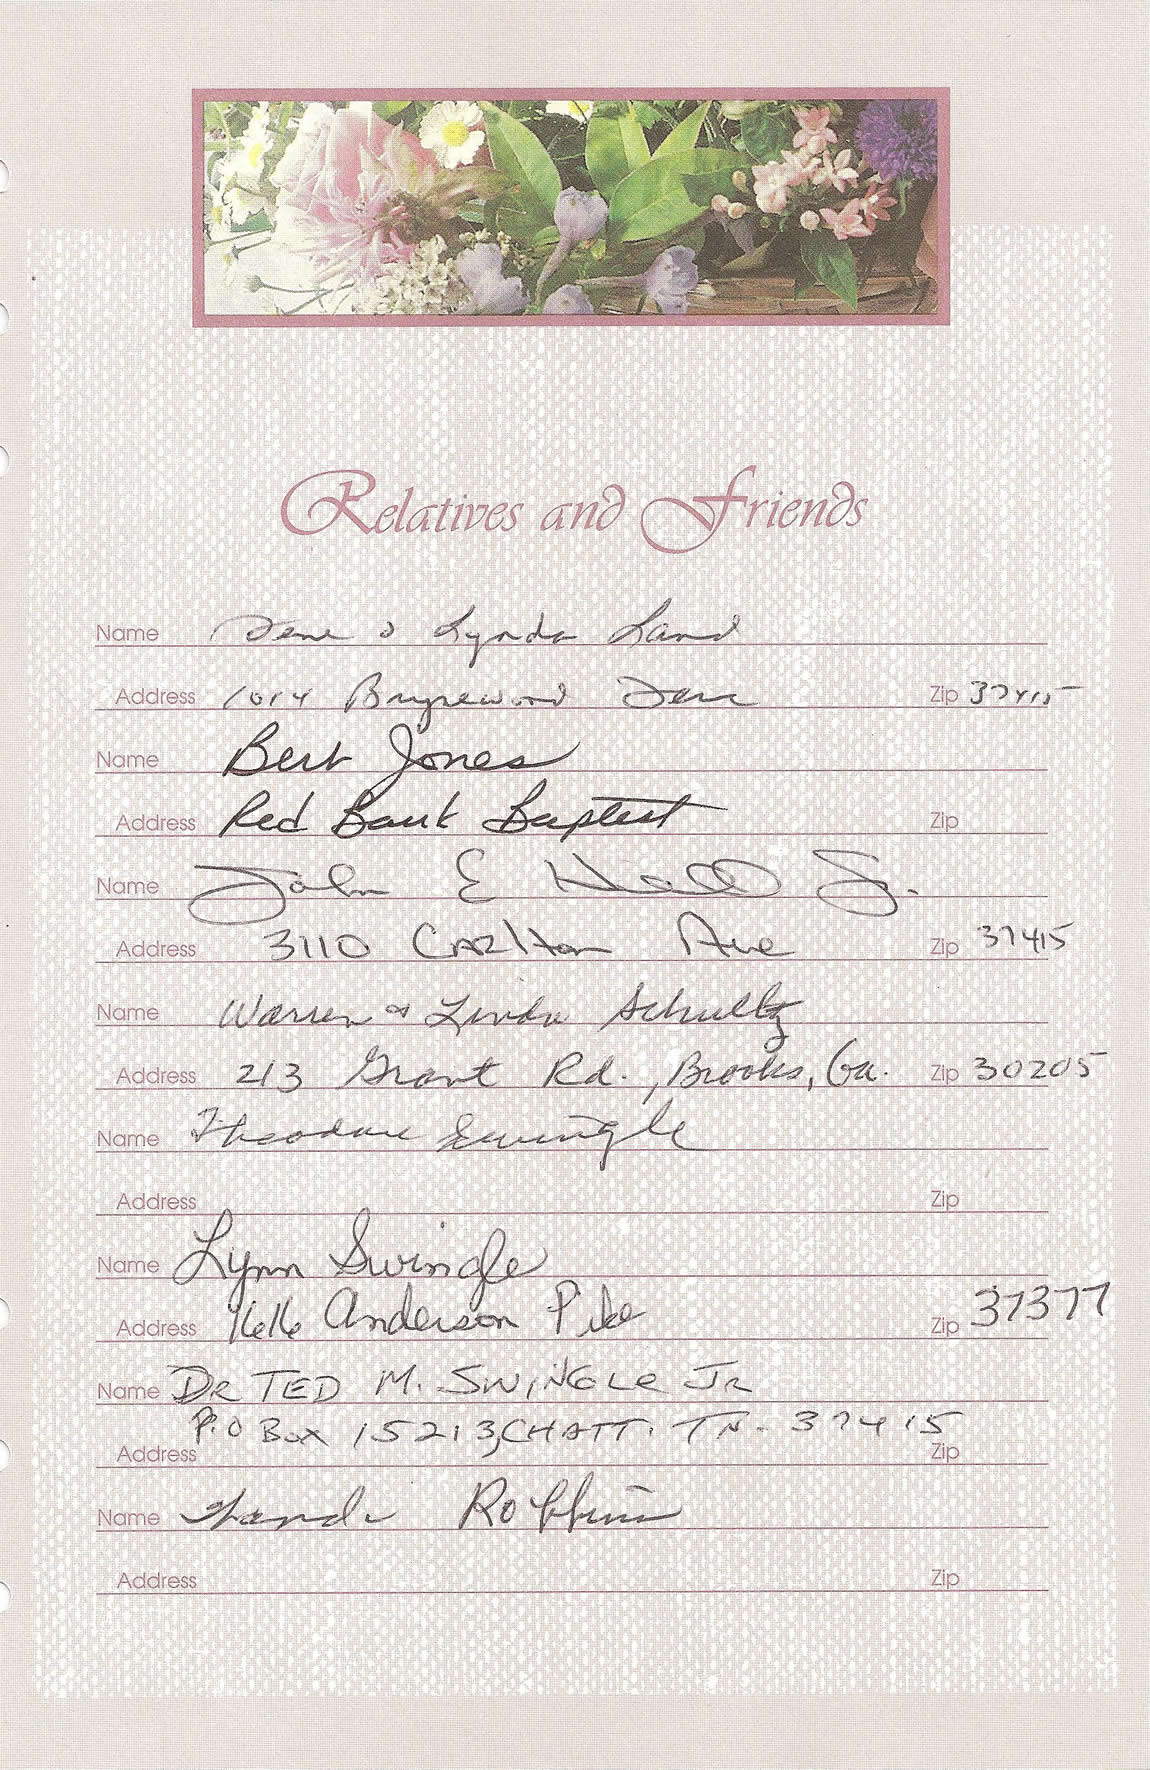 Relatives and Friends
Name Gene & Lynda Land
Address 1014 Terr Zip 37415
Name Bert Jones
Address Red Bank Baptist Zip
Name John E Hall Jr.
Address 3110 Carlton Ave Zip 37415
Name Warren & Linda Schultz
Address 213 Grant Rd., Brooks, Ga. Zip 30205
Name Theodore Swingle
Address Zip
Name Lynn Swingle
Address 1616 Anderson Pike Zip 37377
Name DR TED M. SWINGLE JR
Address P.O Box 15213, CHATT. TN. 37415 Zip
Name Robbins
Address Zip